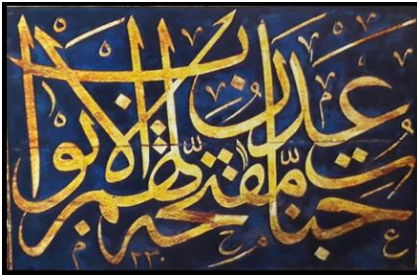 جنّات عدن مفتّحة لهم الابواب